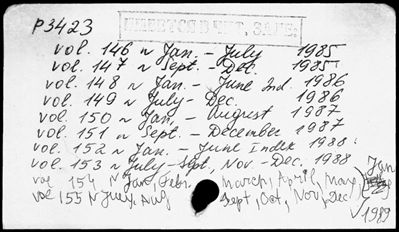 P3423
ИМЕЕТСЯ В ЧИТ. ЗАЛЕ.
vol. 146 ~ Jan. - July 1985
vol. 147 ~ Sept. - Dec. 1985
vol. 148 ~ Jan. - June Ind. 1986
vol. 149 ~ July - Dec. 1986
vol. 150 ~ Jan. - August 1987
vol. 151 ~ Sept. - December 1987
vol. 152 ~ Jan. - June Index 1988
vol. 153 ~ July - Sept, Nov. - Dec. 1988
vol 154 ~ Jan, Febr. March, April, May, Jan
vol 155 ~ July, Aug Sept, Oct, Nov, Dec 1989